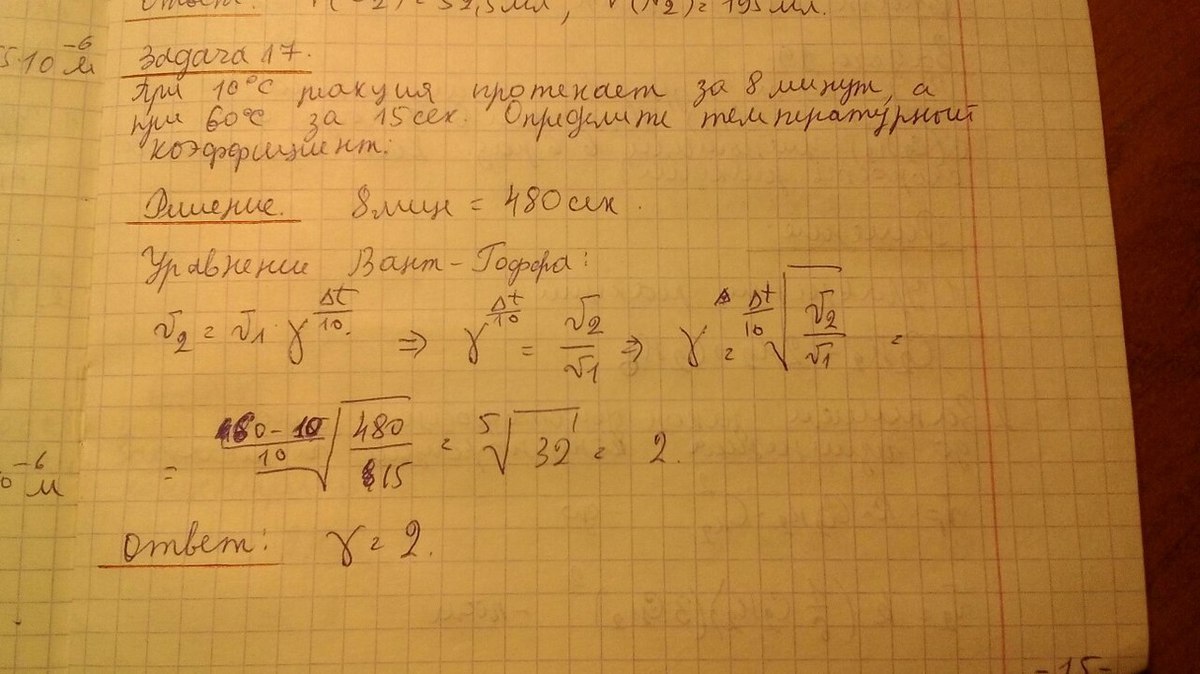 Ответ: V( 2) = 52,5 мл, V(N2) = 195 мл.
5·10⁻⁶ м
Задача 17.
При 10°C реакция протекает за 8 минут, а
при 60°C за 15 сек. Определите температурный
коэффициент.
Решение. 8 мин = 480 сек.
Уравнение Вант-Гоффа:
v₂ = v₁ γ^(Δt/10) ⇒ γ^(Δt/10) = v₂/v₁ ⇒ γ = ^(Δt/10)√(v₂/v₁) =
= ^((60-10)/10)√(480/15) = ⁵√32 = 2.
0⁻⁶ м
Ответ: γ = 2.
-15-